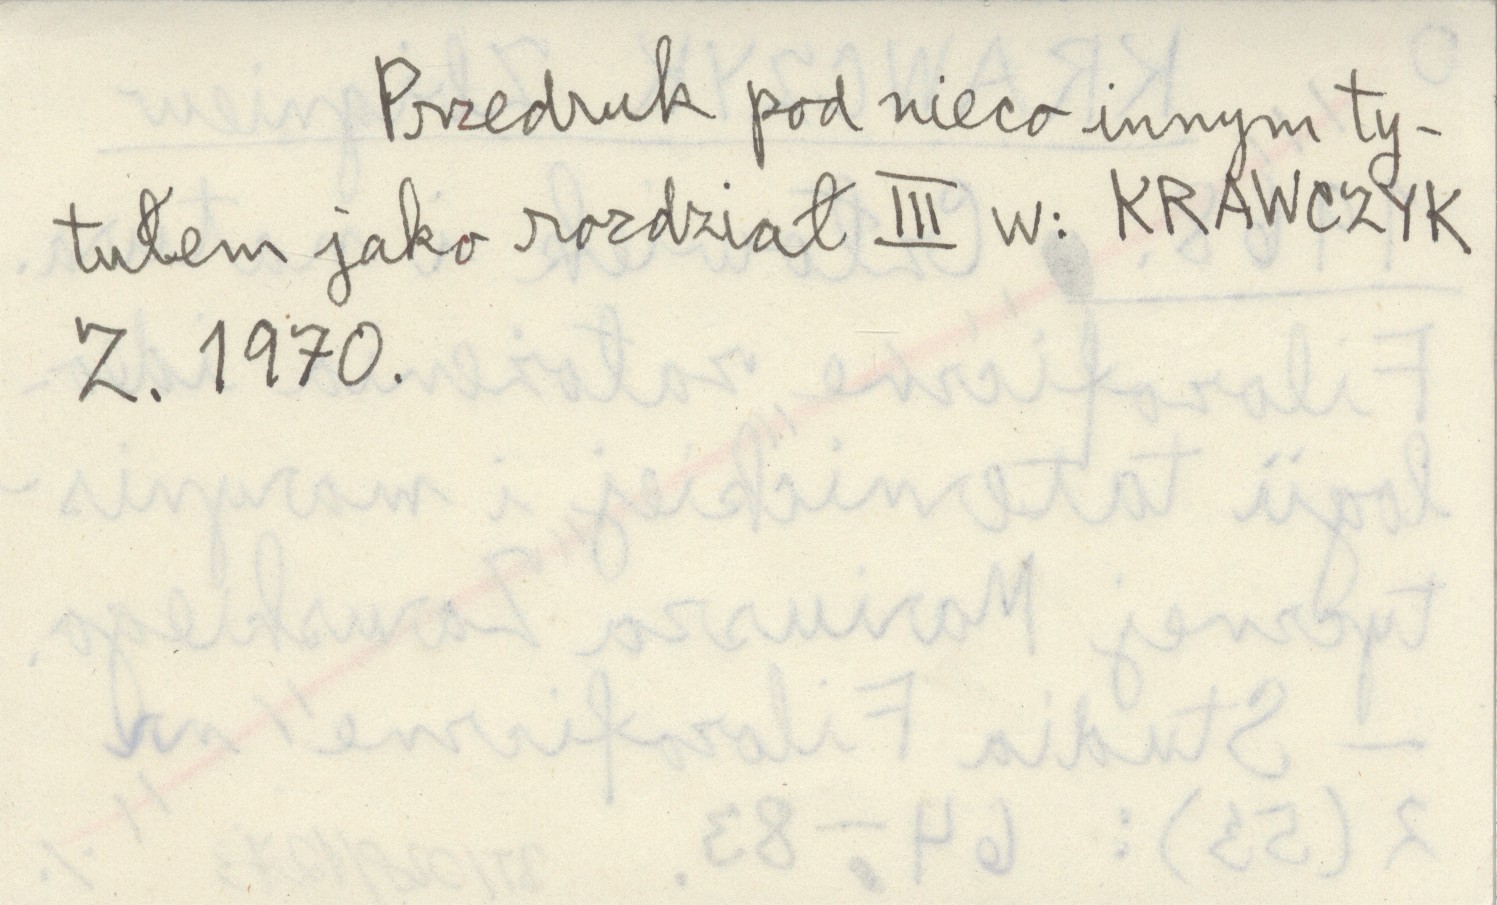 Przedruk pod nieco innym ty-
tułem jako rozdział III w: KRAWCZYK
Z. 1970.